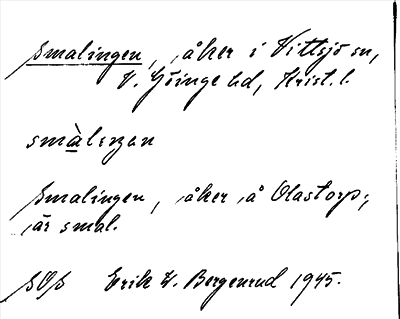 Smalingen, åker i Vittsjö sn,
V. Göinge hd, Krist. l.
smàlıŋən
Smalingen, åker å Olastorp;
är smal.
SOS Erik W. Bergenrud 1945.